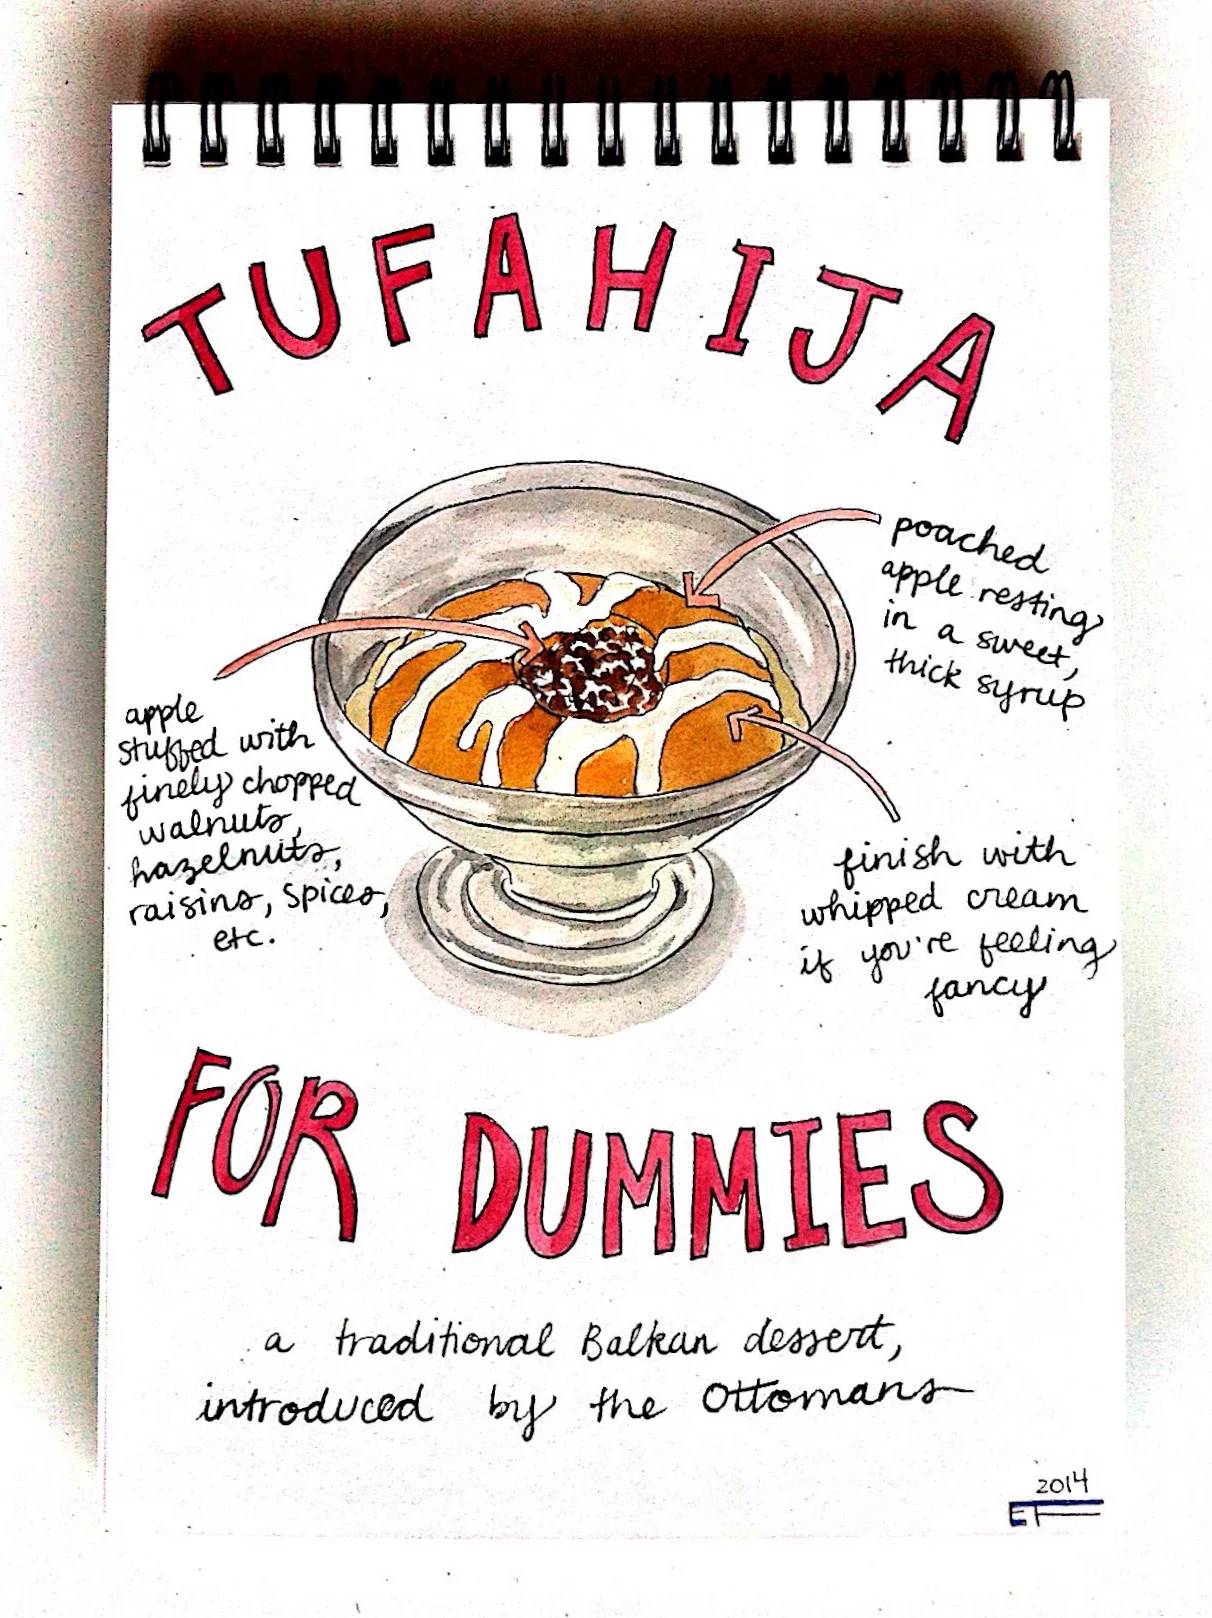 TUFAHIJA
poached
apple resting
in a sweet,
thick syrup
apple
stuffed with
finely chopped
walnuts,
hazelnuts,
raisins, spices,
etc.
finish with
whipped cream
if you're feeling
fancy
FOR DUMMIES
a traditional Balkan dessert,
introduced by the Ottomans
2014
ET